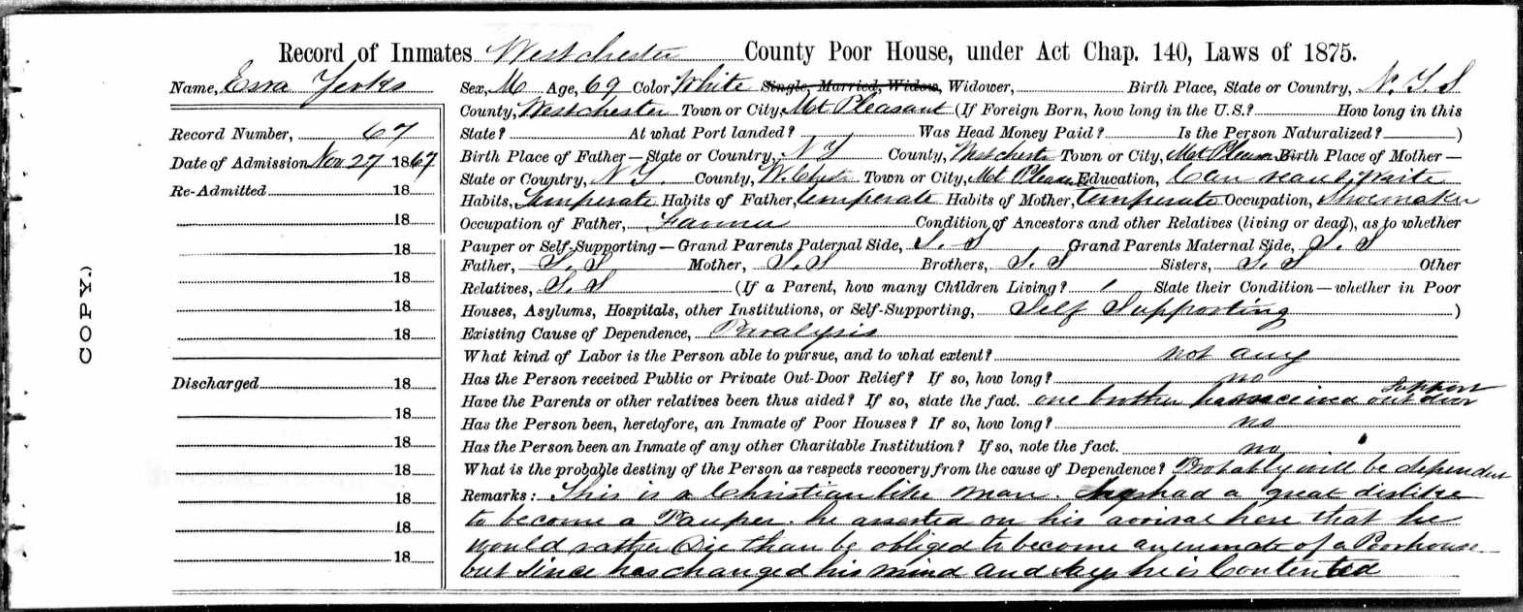 Record of Inmates Westchester County Poor House, under Act Chap. 140, Laws of 1875.
Name, Esra Yerks
Sex, M Age, 69 Color White Single, Married, Widow, Widower, Birth Place, State or Country, N. Y. S
County, Westchester Town or City, Mt Pleasant (If Foreign Born, how long in the U.S.? How long in this
Record Number, 67
State? At what Port landed? Was Head Money Paid? Is the Person Naturalized? )
Date of Admission Nov 27 1867
Birth Place of Father—State or Country, N Y County, Westchester Town or City, Mt Pleasan Birth Place of Mother—
Re-Admitted 18
State or Country, N Y. County, W. Chester Town or City, Mt Pleasan Education, Can read & write
Habits, Temperate Habits of Father, temperate Habits of Mother, temperate Occupation, Shoemaker
18
Occupation of Father, Farmer Condition of Ancestors and other Relatives (living or dead), as to whether
18
Pauper or Self-Supporting—Grand Parents Paternal Side, S. S Grand Parents Maternal Side, S. S
Father, S. S Mother, S. S Brothers, S. S Sisters, S. S Other
18
Relatives, S. S (If a Parent, how many Children Living? 1 State their Condition—whether in Poor
18
Houses, Asylums, Hospitals, other Institutions, or Self-Supporting, Self Supporting )
18
Existing Cause of Dependence, Paralysis
COPY.)
What kind of Labor is the Person able to pursue, and to what extent? not any
Discharged 18
Has the Person received Public or Private Out-Door Relief? If so, how long? no
Have the Parents or other relatives been thus aided? If so, state the fact. one brother has received out door support
18
Has the Person been, heretofore, an Inmate of Poor Houses? If so, how long? no
18
Has the Person been an Inmate of any other Charitable Institution? If so, note the fact. no
18
What is the probable destiny of the Person as respects recovery from the cause of Dependence? Probably will be dependent
18
Remarks: This is a Christian like man. had a great dislike
18
to become a Pauper. he asserted on his arrival here that he
18
would rather Die than be obliged to become an inmate of a Poorhouse
but since has changed his mind and says he is Contented